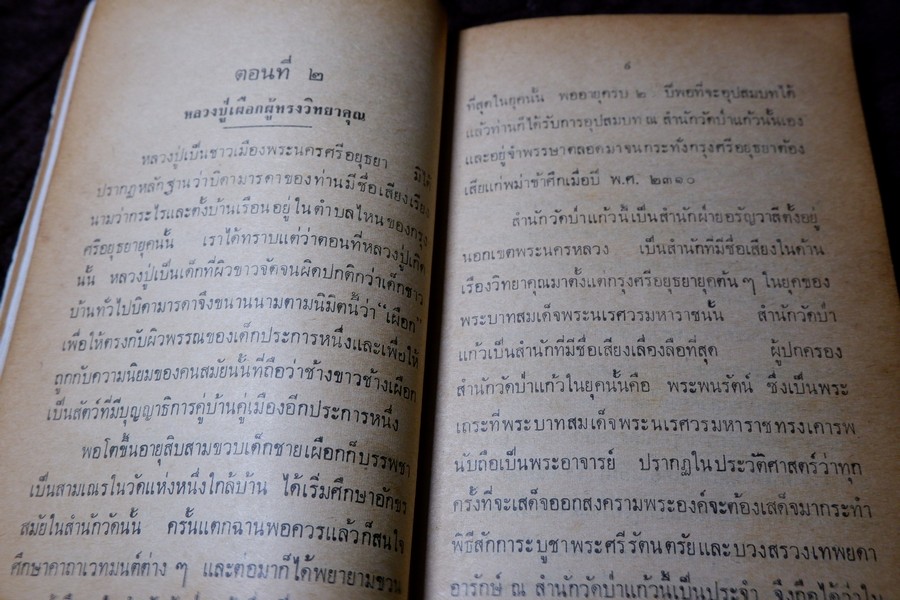 ตอนที่ ๒
หลวงปู่เผือกผู้ทรงวิทยาคุณ
หลวงปู่เป็นชาวเมืองพระนครศรีอยุธยา มิได้
ปรากฏหลักฐานว่าบิดามารดาของท่านมีชื่อเสียงเรียง
นามว่ากระไรและตั้งบ้านเรือนอยู่ในตำบลไหนของกรุง
ศรีอยุธยายุคนั้น เราได้ทราบแต่ว่าตอนที่หลวงปู่เกิด
นั้น หลวงปู่เป็นเด็กที่ผิวขาวจัดจนผิดปกติกว่าเด็กชาว
บ้านทั่วไปบิดามารดาจึงขนานนามตามนิมิตนี้ว่า "เผือก"
เพื่อให้ตรงกับผิวพรรณของเด็กประการหนึ่งและเพื่อให้
ถูกกับความนิยมของคนสมัยนั้นที่ถือว่าช้างขาวช้างเผือก
เป็นสัตว์ที่มีบุญญาธิการคู่บ้านคู่เมืองอีกประการหนึ่ง
พอโตขึ้นอายุสิบสามขวบเด็กชายเผือกก็บรรพชา
เป็นสามเณรในวัดแห่งหนึ่งใกล้บ้าน ได้เริ่มศึกษาอักขร
สมัยในสำนักวัดนั้น ครั้นแตกฉานพอควรแล้วก็สนใจ
ศึกษาคาถาเวทมนต์ต่าง ๆ และต่อมาก็ได้พยายามขวน
ที่สุดในยุคนั้น พออายุครบ ๒ ปีพอที่จะอุปสมบทได้
แล้วท่านก็ได้รับการอุปสมบท ณ สำนักวัดป่าแก้วนั้นเอง
และอยู่จำพรรษาตลอดมาจนกระทั่งกรุงศรีอยุธยาต้อง
เสียแก่พม่าข้าศึกเมื่อปี พ.ศ. ๒๓๑๐
สำนักวัดป่าแก้วนี้เป็นสำนักฝ่ายอรัญวาสีตั้งอยู่
นอกเขตพระนครหลวง เป็นสำนักที่มีชื่อเสียงในด้าน
เรื่องวิทยาคุณมาตั้งแต่กรุงศรีอยุธยายุคต้น ๆ ในยุคของ
พระบาทสมเด็จพระนเรศวรมหาราชนั้น สำนักวัดป่า
แก้วเป็นสำนักที่มีชื่อเสียงเลื่องลือที่สุด ผู้ปกครอง
สำนักวัดป่าแก้วในยุคนั้นคือ พระพนรัตน์ ซึ่งเป็นพระ
เถระที่พระบาทสมเด็จพระนเรศวรมหาราชทรงเคารพ
นับถือเป็นพระอาจารย์ ปรากฏในประวัติศาสตร์ว่าทุก
ครั้งที่จะเสด็จออกสงครามพระองค์จะต้องเสด็จมากระทำ
พิธีสักการะบูชาพระศรีรัตนตรัยและบวงสรวงเทพยดา
อารักษ์ ณ สำนักวัดป่าแก้วนี้เป็นประจำ จึงถือได้ว่าใน